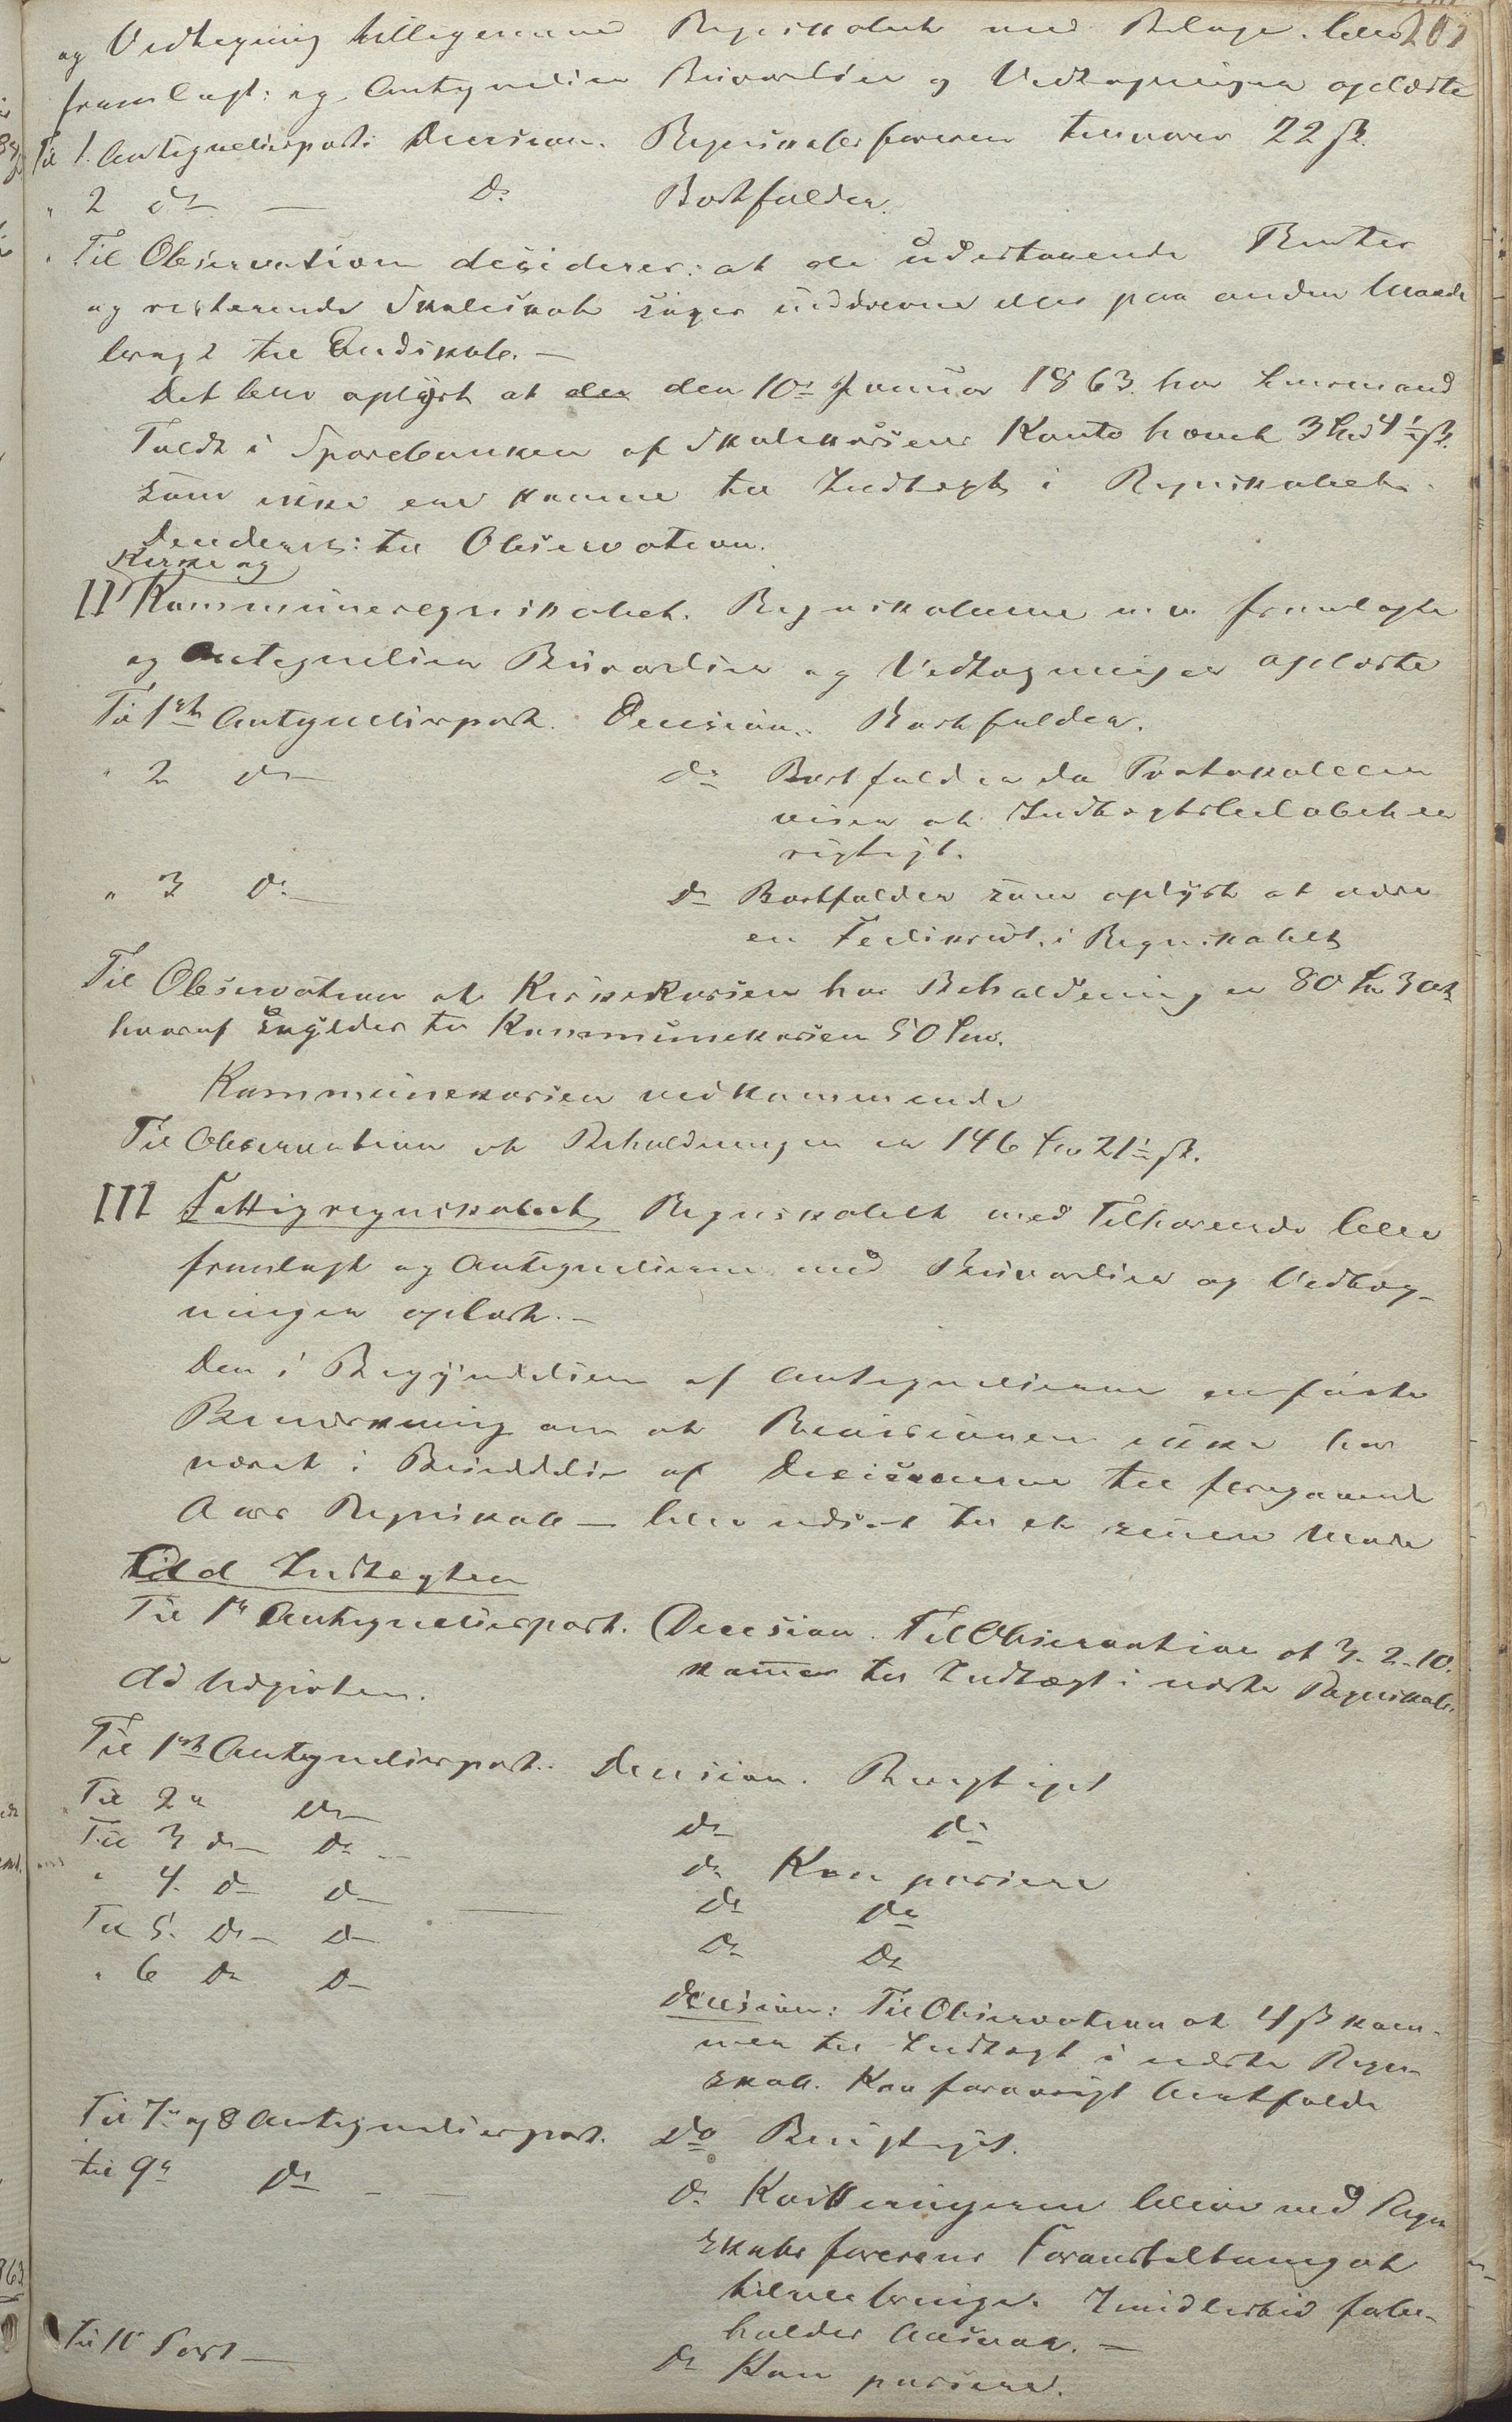 og Vedtegning tilligemed Regnskabet med Bilage blev 207
fremlagt: og Antegnelsen Besvarelsen og Vedtegningen oplæste
Til 1. Antegnelsespost: Decision. Regnskabsføreren tilsvarer 22 ß.
" 2 do — Do Bortfalder.
Til Observation desideres: at de udestaaende Renter
og resterende Skoleskat søges inddrevne eller paa anden Maade
bragt til Endskab. —
Det blev oplyst at den 10de Januar 1863 har Lensmand
Toldt i Sparebanken af Skolekassens Konto hævet 3 4½ ß.
som ikke sees komme til Indtægt i Regnskabet.
til Observation.
Kirke og
II Kommuneregnskabet. Regnskaberne m. v. fremlagte
og Antegnelsen Besvarelsen og Vedtegningen oplæste
Til 1ste Antegnelsespost. Decision. Bortfalder.
" 2 do — do Bortfalder da Protokollen
viser at Indtægtsbeløbet er
rigtigt.
" 3 Do — do Bortfalder som oplyst at være
en Feilskrivt. i Regnskabet
Til Observation at Kirkekassen har Beholdning er 80 3
hvoraf skyldes til Kommunekassen 50
Kommunekassen vedkommende
Til Observation at Beholdningen er 146 21½ ß.
III Fattigregnskabet Regnskabet med Tilhørende blev
fremlagt og Antegnelserne med Besvarelsen og Vedteg-
ningen oplæst. —
Den i Begyndelsen af Antegnelserne anførte
Bemærkning om at Revisionen ikke har
været i Besiddelse af Decisionerne til foregaaende
Aars Regnskab — blev udsat til et senere Møde
Ad Indtegten
Til 1e Antegnelsespost. Decision. Til Observation at 3-2-10.
kommer til Indtægt i neste Regnskab.
Ad Udgivten.
Til 1ste Antegnelsespost. Decision. Berigtiget
Til 2n Do — do do
Til 3 do — Do — do Kan passere
" 4. do do — do do
Til 5. Do — Do do Do
" 6 Do Do
Decision: Til Observation at 4 ß kom-
mer til Indtægt i neste Regn-
skab. Kan forøvrigt bortfalde
Til 7de og 8 Antegnelsespost. Do Berigtiget.
til 9n Do — — do Kvitteringerne blive ved Regn
skabsførerens Foranstaltning at
tilveiebringe. Imidlertid forbe-
holdes Ansvar. —
Til 10 Post — do Kan passere.